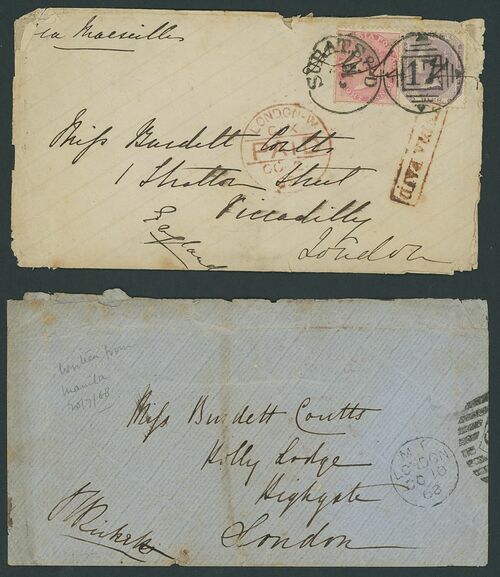 via Marseilles
SURAT
17
LONDON-W
PAID
OC
INDIA PAID
Miss Burdett Coutts
1 Stratton Street
Piccadilly
London
England
written from
Manila
Miss Burdett Coutts
Holly Lodge
Highgate
London
LONDON
OC 18
68